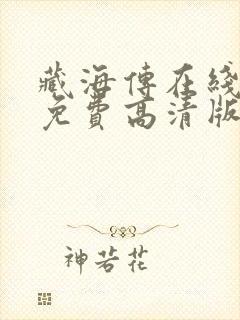 藏海傳在綫
免費高清版
神若花